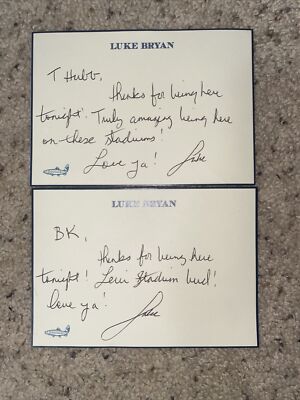 LUKE BRYAN
T Hubb,
thanks for being here
tonight. Truly amazing being here
on these stadiums!
Love ya! Luke
LUKE BRYAN
BK,
thanks for being here
tonight! Levi Stadium bud!
love ya!
Luke